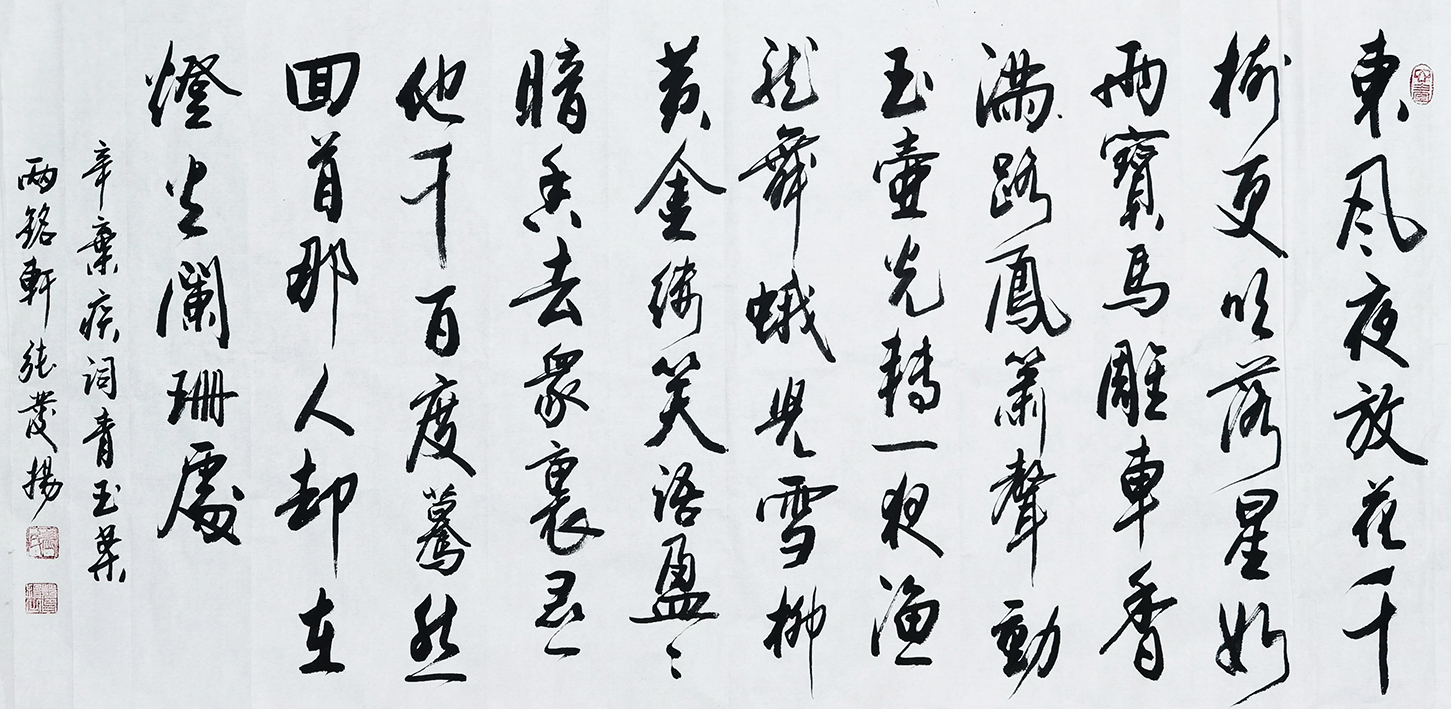 東風夜放花千
樹更吹落星如
雨寶馬雕車香
滿路鳳簫聲動
玉壺光轉一夜漁
龍舞蛾兒雪柳
黃金縷笑語盈〻
暗香去眾裏尋
他千百度驀然
回首那人卻在
燈火闌珊處
辛棄疾詞青玉案
兩銘軒張發揚